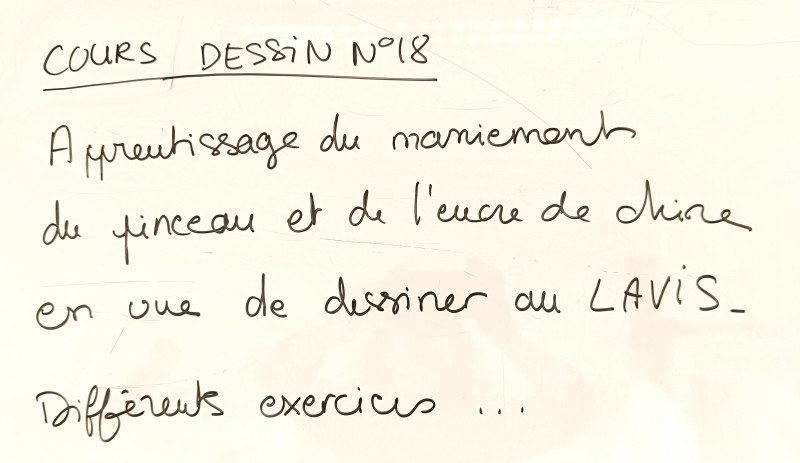 COURS DESSiN N°18
Apprentissage du maniement
du pinceau et de l'encre de chine
en vue de dessiner au LAViS_
Différents exercices ...